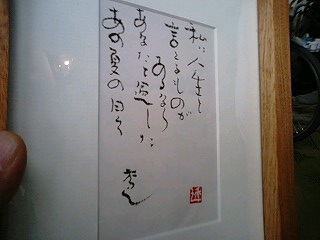 私に人生と
言えるものが
あるなら
あなたと過した
あの夏の日々